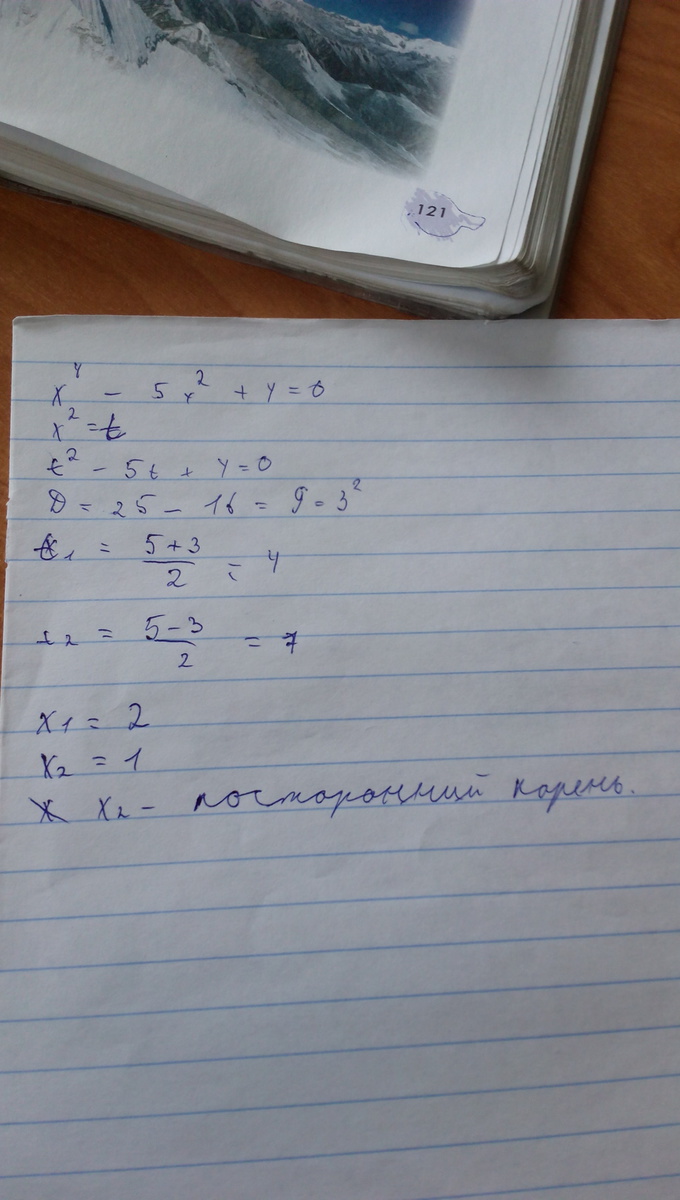 121
x⁴ - 5x² + 4 = 0
x² = t
t² - 5t + 4 = 0
D = 25 - 16 = 9 = 3²
t₁ = (5+3)/2 = 4
t₂ = (5-3)/2 = 1
x₁ = 2
x₂ = 1
x₂ - посторонний корень.